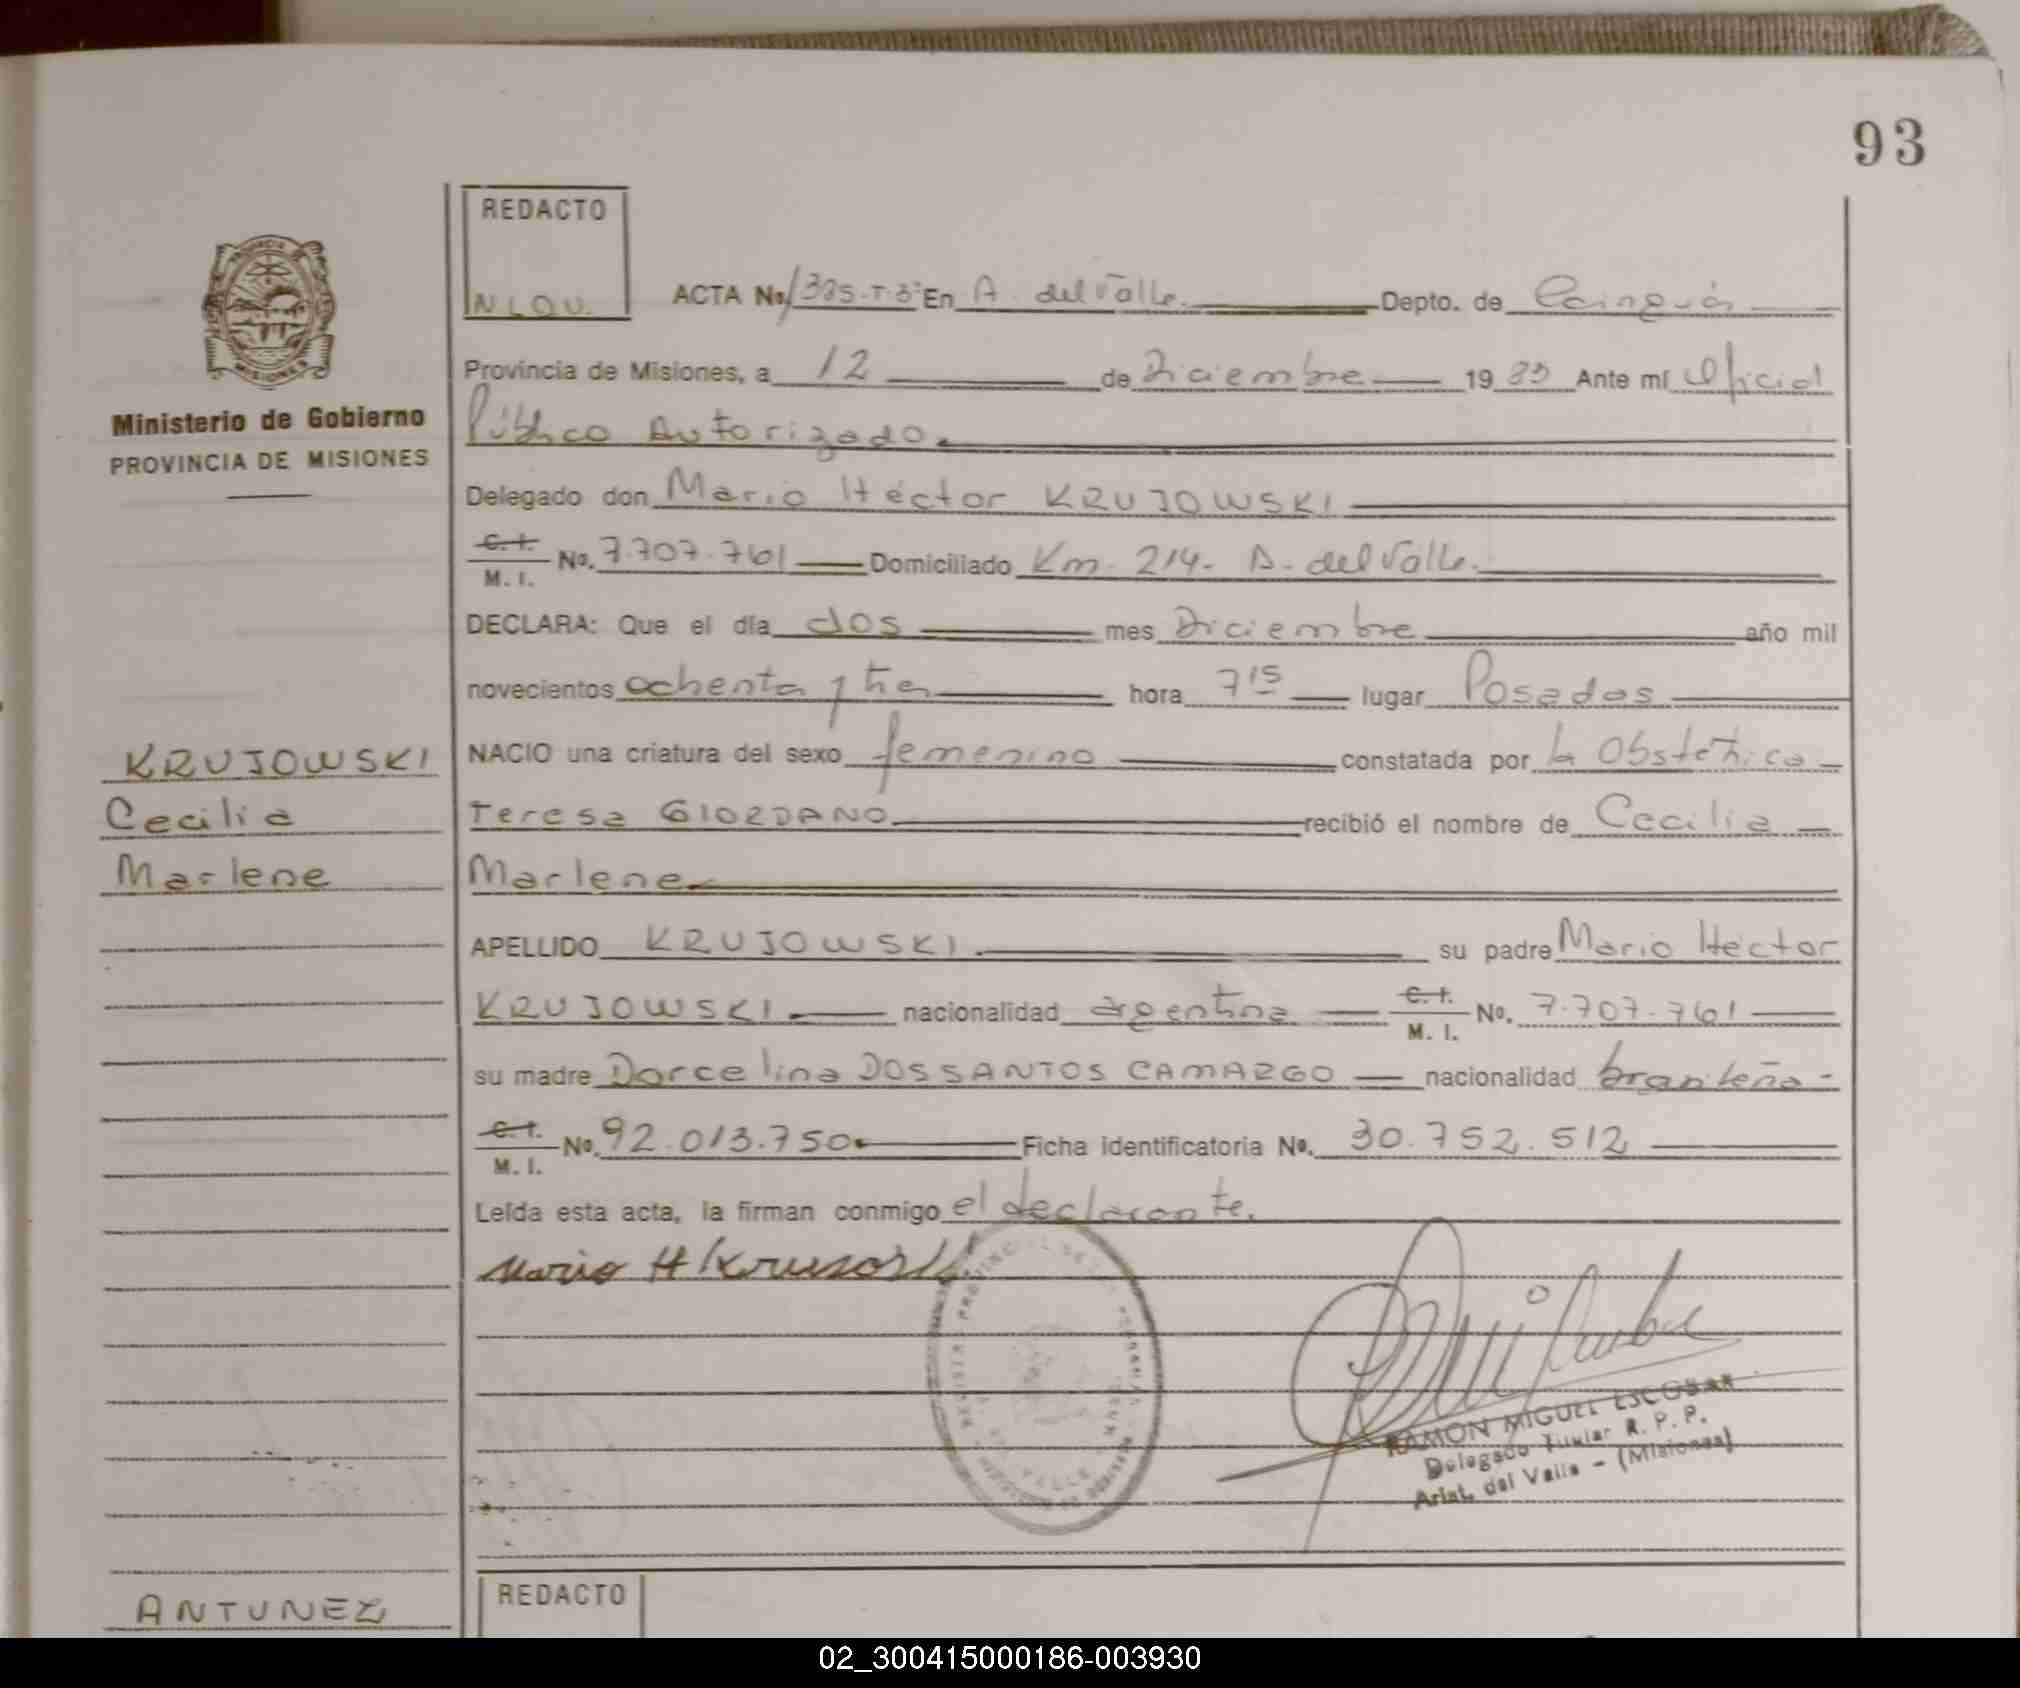 93
REDACTO
N L Q V.
ACTA No. 385-T.3º En A. del Valle. Depto. de Cainguás
Provincia de Misiones, a 12 de Diciembre 19 83 Ante mí Oficial
Público Autorizado.
Ministerio de Gobierno
PROVINCIA DE MISIONES
Delegado don Mario Héctor KRUJOWSKI
C. I. M. I. No. 7.707.761 Domiciliado Km. 214- A. del Valle.
DECLARA: Que el día dos mes Diciembre año mil
novecientos ochenta y tres hora 7 15 lugar Posadas
NACIO una criatura del sexo femenino constatada por la Obstetrica
Teresa GIORDANO recibió el nombre de Cecilia
Marlene
KRUJOWSKI
Cecilia
Marlene
APELLIDO KRUJOWSKI su padre Mario Héctor
KRUJOWSKI nacionalidad argentina C. I. M. I. No. 7.707.761
su madre Dorcelina DOS SANTOS CAMARGO nacionalidad brasileña
C. I. M. I. No. 92.013.750 Ficha identificatoria No. 30.752.512
Leída esta acta, la firman conmigo el declarante.
Mario H Krujoski
RAMON MIGUEL ESCOBAR
Delegado Titular R. P. P.
Arist. del Valle - (Misiones)
ANTUNEZ
REDACTO
02_300415000186-003930